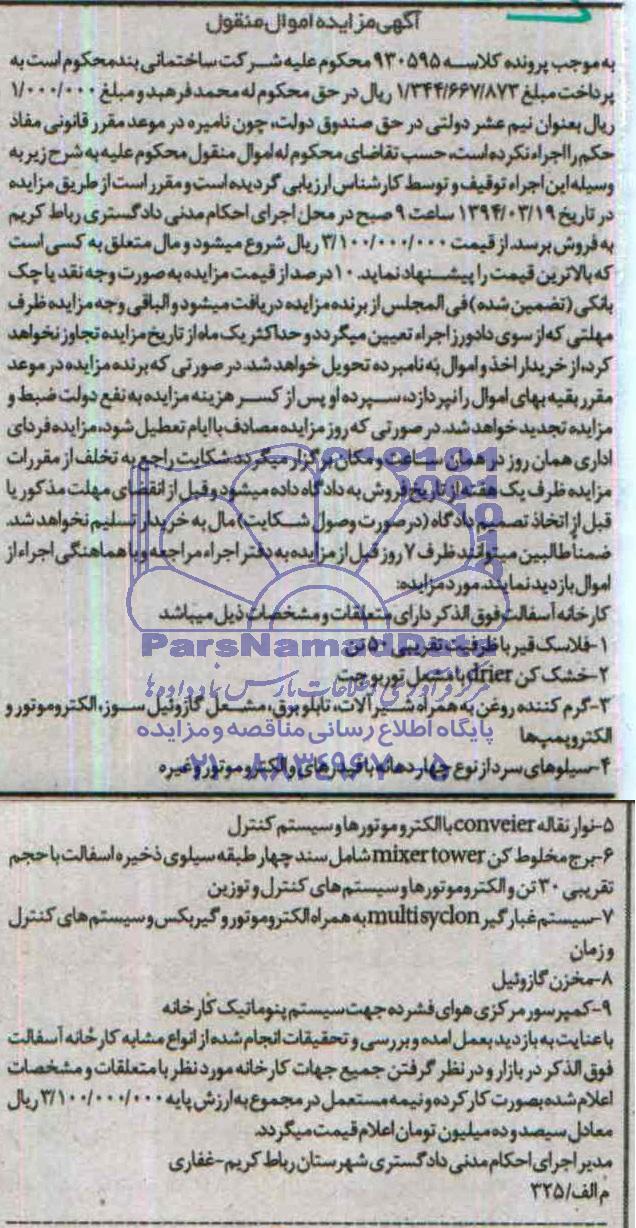 آگهی مزایده اموال منقول
به موجب پرونده کلاسه ۹۳۰۵۹۵ محکوم علیه شرکت ساختمانی بند محکوم است به
پرداخت مبلغ ۱/۳۴۴/۶۶۷/۸۷۳ ریال در حق محکوم له محمد فرهبد و مبلغ ۱/۰۰۰/۰۰۰
ریال بعنوان نیم عشر دولتی در حق صندوق دولت، چون نامبره در موعد مقرر قانونی مفاد
حکم را اجراء نکرده است، حسب تقاضای محکوم له اموال منقول محکوم علیه به شرح زیر به
وسیله این اجراء توقیف و توسط کارشناس ارزیابی گردیده است و مقرر است از طریق مزایده
در تاریخ ۱۳۹۴/۰۳/۱۹ ساعت ۹ صبح در محل اجرای احکام مدنی دادگستری رباط کریم
به فروش برسد. از قیمت ۳/۱۰۰/۰۰۰/۰۰۰ ریال شروع میشود و مال متعلق به کسی است
که بالاترین قیمت را پیشنهاد نماید. ۱۰ درصد از قیمت مزایده به صورت وجه نقد یا چک
بانکی (تضمین شده) فی المجلس از برنده مزایده دریافت میشود و الباقی وجه مزایده ظرف
مهلتی که از سوی دادورز اجراء تعیین میگردد و حداکثر یک ماه از تاریخ مزایده تجاوز نخواهد
کرد، از خریدار اخذ و اموال به نامبرده تحویل خواهد شد. در صورتی که برنده مزایده در موعد
مقرر بقیه بهای اموال را نپردازد، سپرده او پس از کسر هزینه مزایده به نفع دولت ضبط و
مزایده تجدید خواهد شد. در صورتی که روز مزایده مصادف با ایام تعطیل شود، مزایده فردای
اداری همان روز در همان ساعت و مکان برگزار میگردد. شکایت راجع به تخلف از مقررات
مزایده ظرف یک هفته از تاریخ فروش به دادگاه داده میشود و قبل از انقضای مهلت مذکور یا
قبل از اتخاذ تصمیم دادگاه (در صورت وصول شکایت) مال به خریدار تسلیم نخواهد شد.
ضمناً طالبین میتوانند ظرف ۷ روز قبل از مزایده به دفتر اجراء مراجعه و با هماهنگی اجراء از
اموال بازدید نمایند. مورد مزایده:
کارخانه آسفالت فوق الذکر دارای متعلقات و مشخصات ذیل میباشد
ParsNamadData
۱-فلاسک قیر با ظرفیت تقریبی ۵۰ تن
۲-خشک کن drier با مشعل توربوجت
مرکز فرآوری اطلاعات پارس نماد داده ها
۳-گرم کننده روغن به همراه شیرآلات، تابلو برق، مشعل گازوئیل سوز، الکتروموتور و
پایگاه اطلاع رسانی مناقصه و مزایده
الکتروپمپ‌ها
۴-سیلوهای سرد از نوع چهار دهانه با فیدرهای و الکتروموتور و غیره
۰۲۱-۸۸۳۴۹۶۷۰-۵
۵-نوار نقاله conveier با الکتروموتورها و سیستم کنترل
۶-برج مخلوط کن mixer tower شامل سند چهار طبقه سیلوی ذخیره اسفالت با حجم
تقریبی ۳۰ تن و الکتروموتورها و سیستم های کنترل و توزین
۷-سیستم غبارگیر multisyclon به همراه الکتروموتور و گیربکس و سیستم های کنترل
و زمان
۸-مخزن گازوئیل
۹-کمپرسور مرکزی هوای فشرده جهت سیستم پنوماتیک کارخانه
با عنایت به بازدید بعمل امده و بررسی و تحقیقات انجام شده از انواع مشابه کارخانه آسفالت
فوق الذکر در بازار و در نظر گرفتن جمیع جهات کارخانه مورد نظر با متعلقات و مشخصات
اعلام شده بصورت کارکرده و نیمه مستعمل در مجموع به ارزش پایه ۳/۱۰۰/۰۰۰/۰۰۰ ریال
معادل سیصد و ده میلیون تومان اعلام قیمت میگردد.
مدیر اجرای احکام مدنی دادگستری شهرستان رباط کریم-غفاری
م الف/۳۲۵